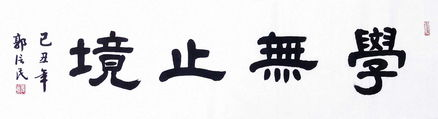 學無止境
己丑年
郭信民